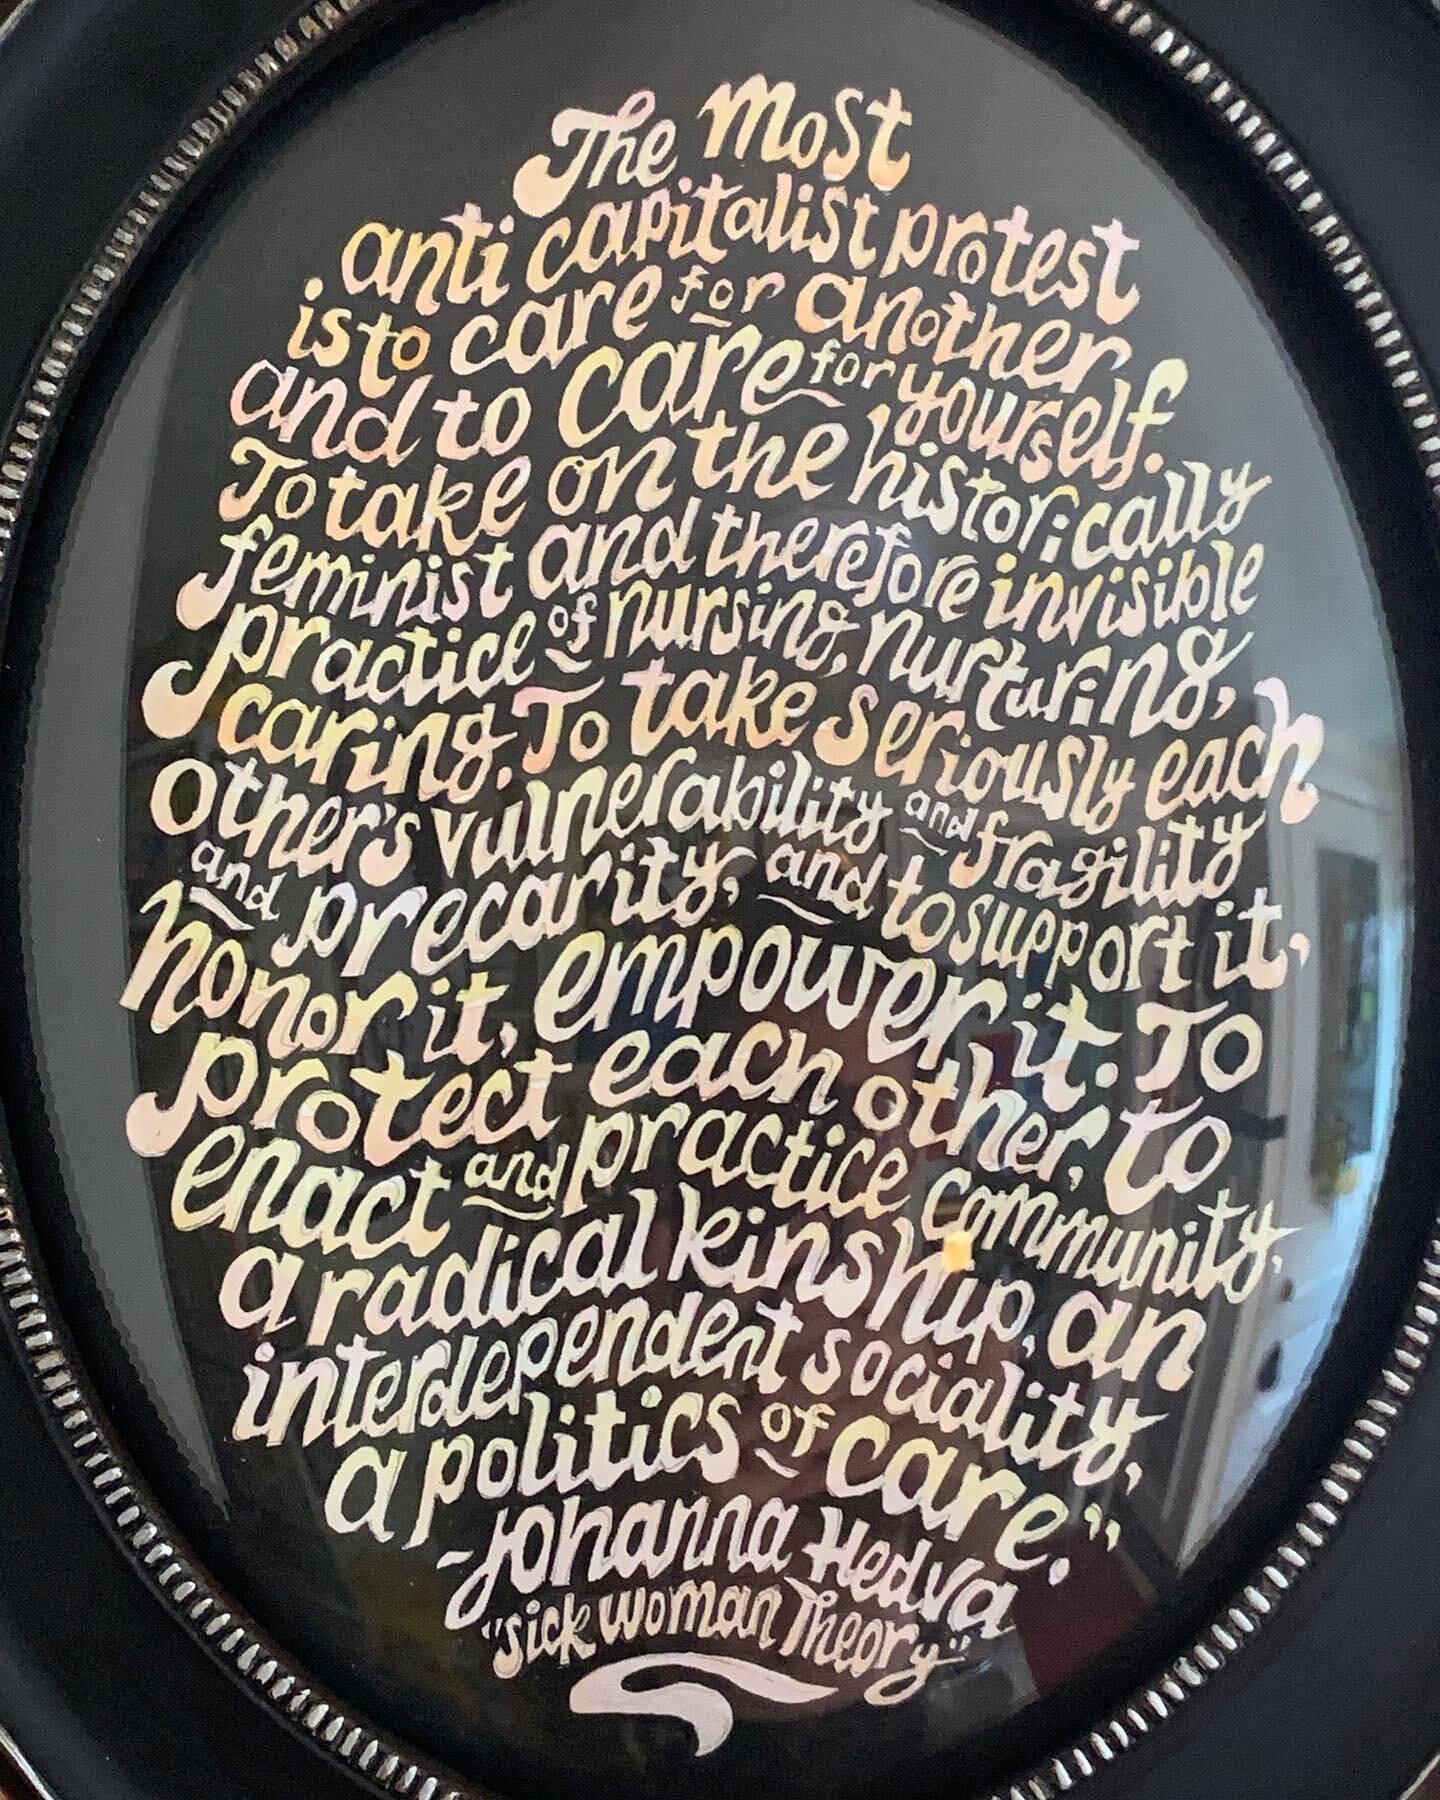 The most
anti capitalist protest
is to care for another
and to care for yourself.
To take on the historically
feminist and therefore invisible
practice of nursing, nurturing,
caring. To take seriously each
other's vulnerability and fragility
and precarity, and to support it,
honor it, empower it. To
protect each other, to
enact and practice community,
a radical kinship, an
interdependent sociality,
a politics of care."
-Johanna Hedva
"Sick Woman Theory"